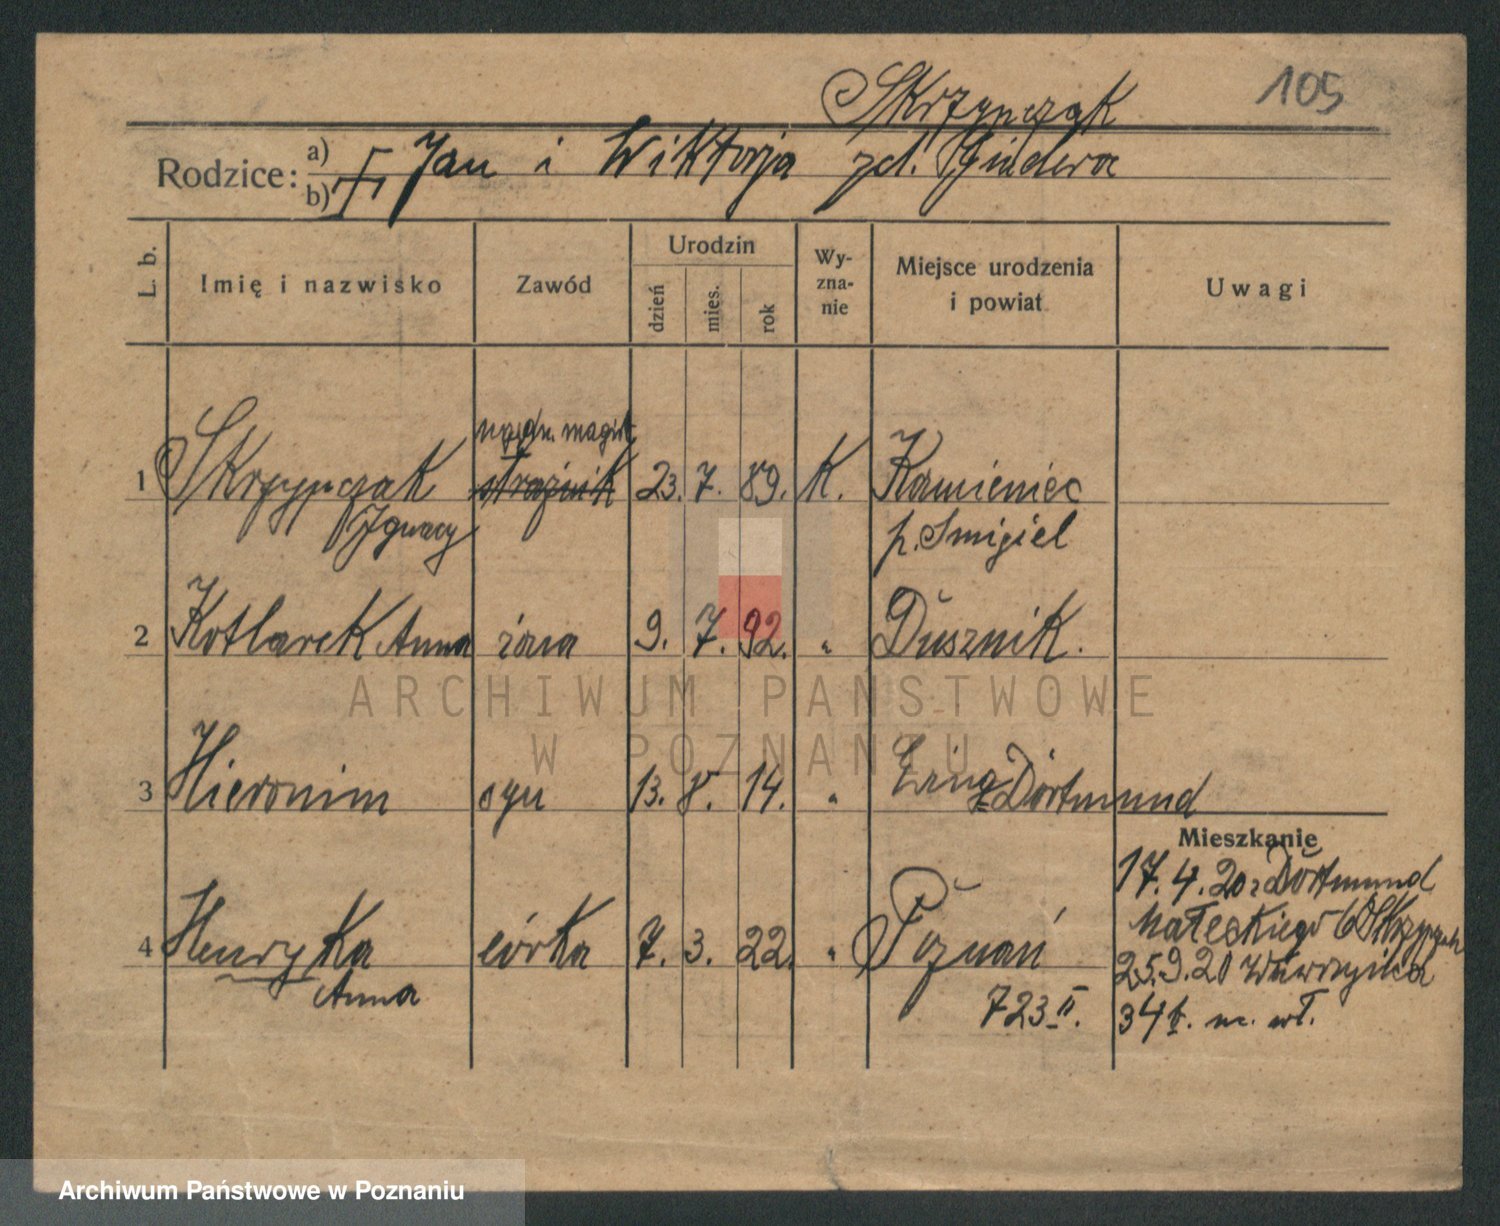 105
Skrzypczak
Rodzice: a) b) Jan i Wiktorja zd.
L. b.
Imię i nazwisko
Zawód
Urodzin
dzień
mies.
rok
Wy-
zna-
nie
Miejsce urodzenia
i powiat
Uwagi
magist
1 Skrzypczak strażnik 23. 7. 89. K. Kamieniec
Ignacy p. Smigiel
2 Kotlarek Anna żona 9. 7. 92. " Dusznik.
3 Hieronim syn 13. 8. 14. " Dortmund
Mieszkanie
17. 4. 20 z Dortmund
Małeckiego
4 Henryka córka 7. 3. 22. " Poznań
25.9.20 Wawrzyńca
Anna 723 II. 34
ARCHIWUM PAŃSTWOWE
W POZNANIU
Archiwum Państwowe w Poznaniu